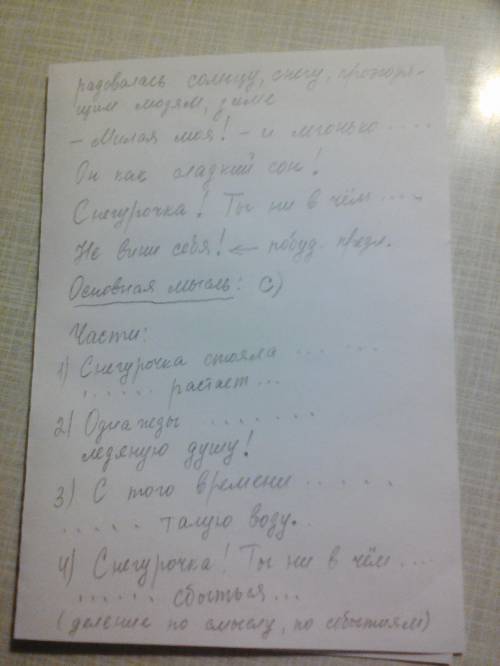 радовалась солнцу, снегу, прохоря-
щим людям, зиме
- Милая моя! - и легонько ....
Он как сладкий сон!
Снегурочка! Ты ни в чём ....
Не вини себя! ← побуд. предл.
Основная мысль: С)
Части:
1) Снегурочка стояла ... ...
..... растает ...
2) Однажды .......
ледяную душу!
3) С того времени .....
..... талую воду.
4) Снегурочка! Ты ни в чём ....
...... сбыться ...
(деление по смыслу, по событиям)